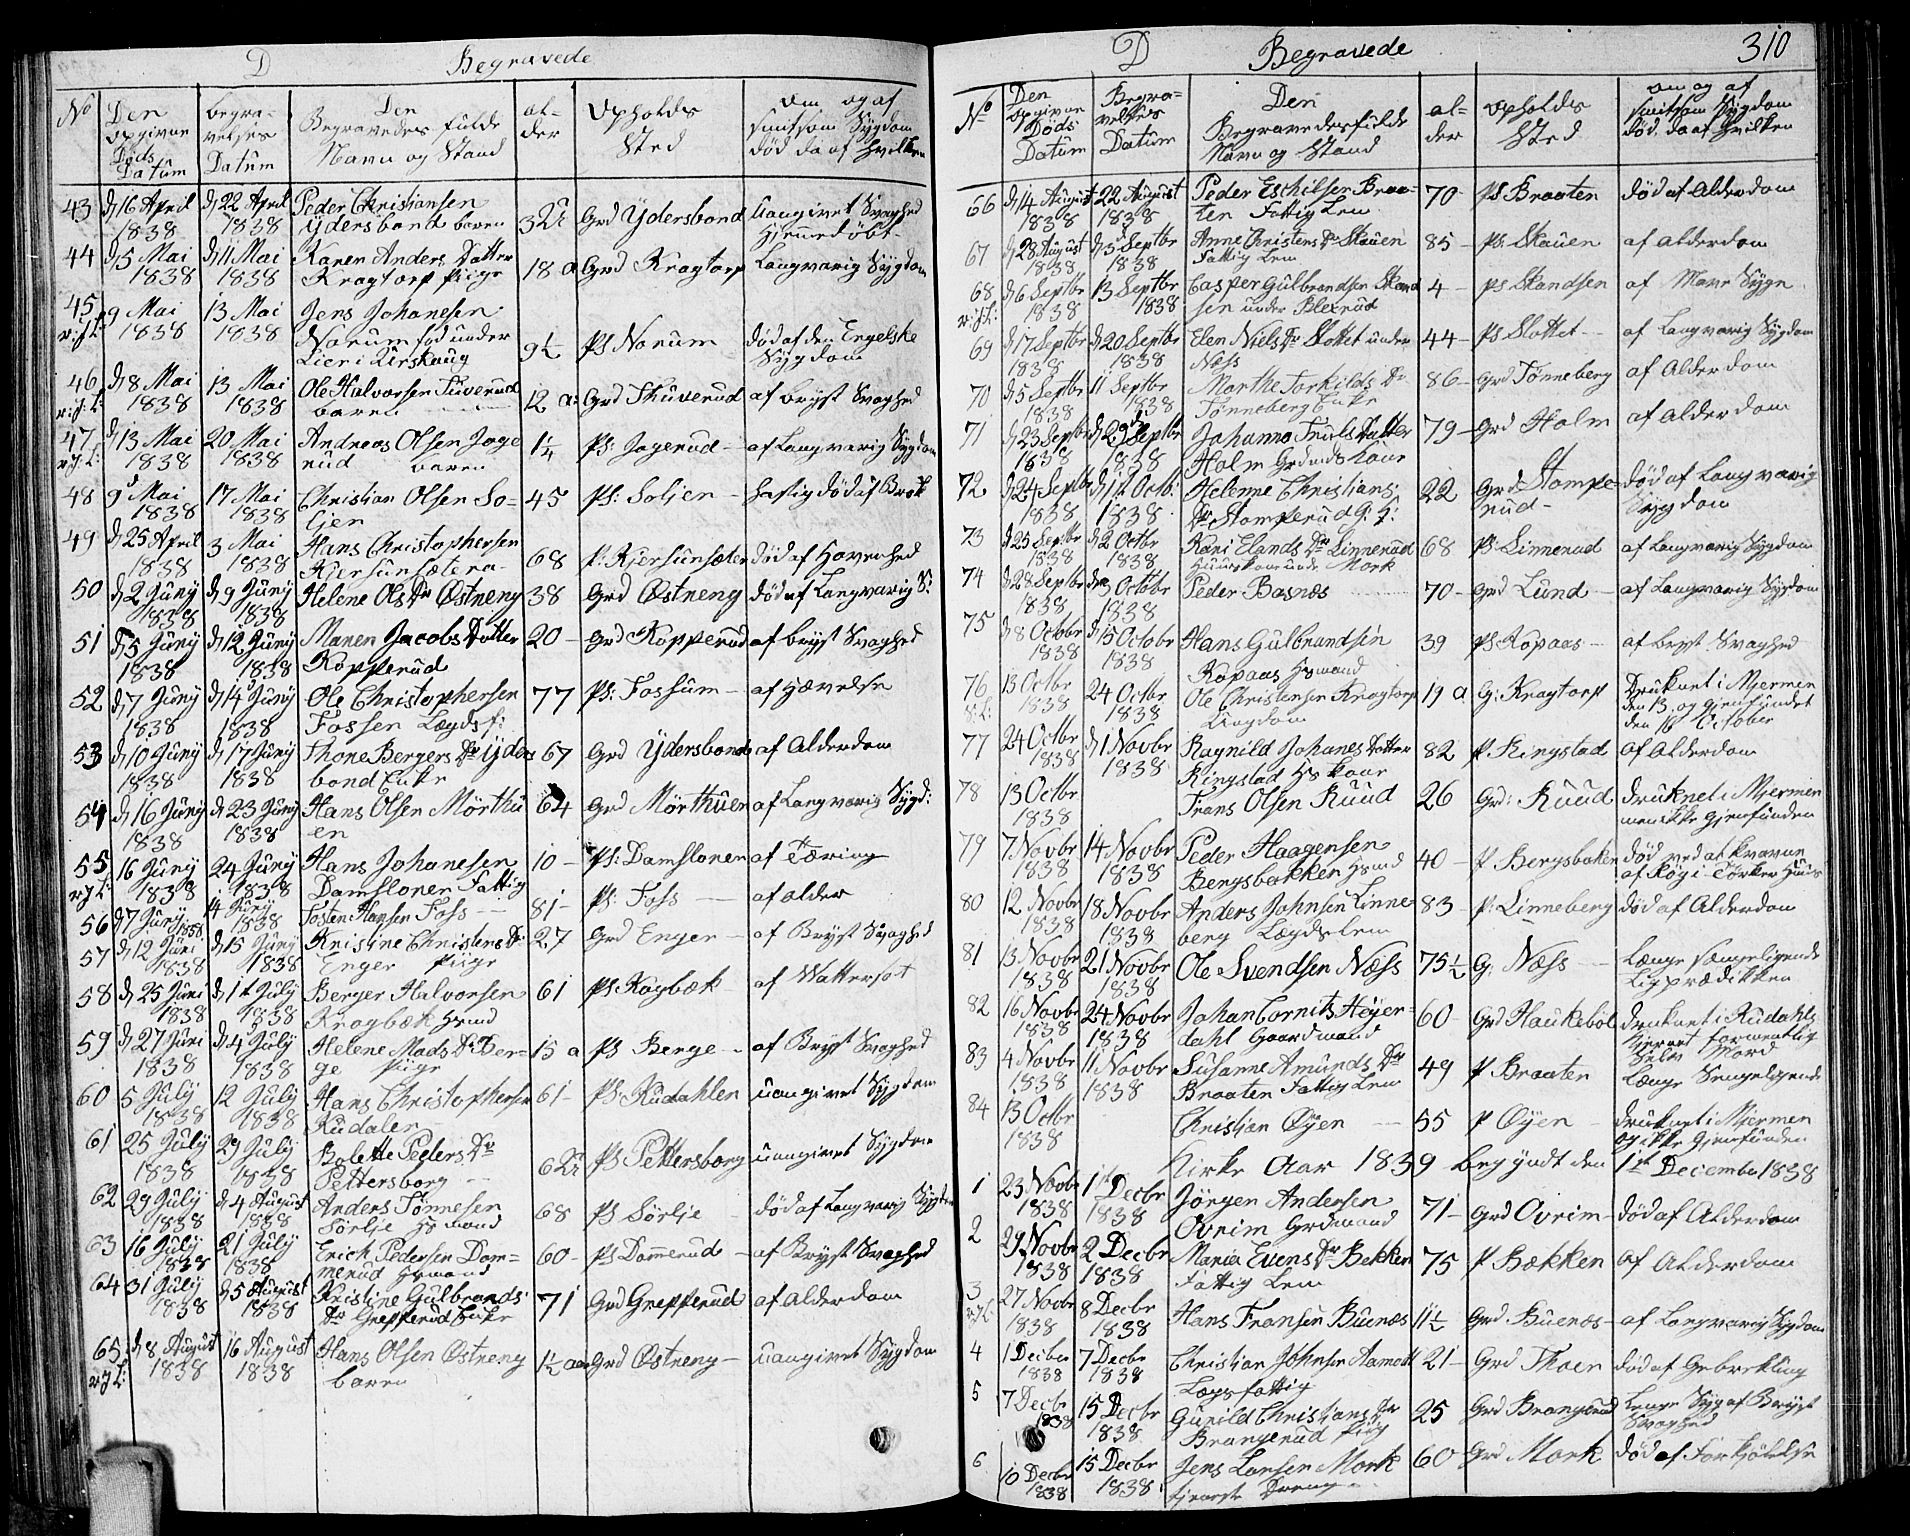 D Begravede
No
Den opgivne Døds Datum
begravelses Datum
Den Begravedes fulde Navn og Stand
alder
Opholds Sted
om og af smitsom Sygdom død da af hvilken
43 d 16 April 1838 d 22 April 1838 Peder Christiansen Ydersbond baren 3 Grd Ydersbond uangivet Svaghed Hjemmedøbt
44 d 5 Mai 1838 d 11 Mai 1838 Karen Anders Datter Kragtorp Piige 18 a Grd Kragtorp Langvarig Sygdom
45 9 Mai 1838 13 Mai 1838 Jens Johanesen Norum fød under Lier i Kirskaug 9½ Ps Norum død af den Engelske Sygdom
46 d 8 Mai 1838 13 Mai 1838 Ole Halvorsen Tuverud baren 12 a: Grd Thuverud af bryst Svaghed
47 d 13 Mai 1838 20 Mai 1838 Andreas Olsen Jogerud baren 1¼ Ps: Jogerud af Langvarig Sygdom
48 9 Mai 1838 17 Mai 1838 Christian Olsen Soljen 45 Ps: Soljen hastig død af Brok
49 d 25 April 1838 3 Mai 1838 Hans Christophersen 68 P: død af Hovenhed
50 d 2 Juny 1838 d 9 Juny 1838 Helene Ols Dr Østneng 38 Grd Østneng død af Langvarig S:
51 d 5 Juny 1838 d 12 Juny 1838 Maren Jacobs Datter Kopperud 20 Grd Kopperud af bryst Svaghed
52 d 7 Juny 1838 d 14 Juny 1838 Ole Christophersen Fossen Lægdsf: 77 Ps: Fossum af Hævelse
53 d 10 Juny 1838 d 17 Juny 1838 Thone Bergers Dr Ydersbond Enke 67 Grd Ydersbond af Alderdom
54 d 16 Juny 1838 d 23 Juny 1838 Hans Olsen Mörthuen 64 Grd Mörthuen af Langvarig Sygd:
55 16 Juny 1838 24 Juny 1838 Hans Johanesen Damslonen Fattig 10 Ps: Damslonen af Tæring
56 d 7 Juny 1838 14 Juny 1838 Tosten Hansen Foss 81 Ps: Foss af alder
57 d 12 Juni 1838 d 15 Juny 1838 Kristine Christens Dr Enger Piige 27 Grd Enger af Bryst Svaghed
58 d 25 Juni 1838 d 1t July 1838 Berger Halvorsen Kragbæk Hsmd 61 Ps Kragbæk af Wattersot
59 d 27 Juni 1838 d 4 July 1838 Helene Mads Dr Berge Piige 15 a Ps Berge af Bryst Svaghed
60 5 July 1838 12 July 1838 Hans Christophersen Rudalen 61 Ps: Rudahlen uangivet Sygdom
61 25 July 1838 29 July 1838 Bolette Peders Dr Pettersborg 6 Ps Pettersborg uangivet Sygdom
62 29 July 1838 d 4 August 1838 Anders Tönnesen Sörlie Hsmand 68 Ps Sörlie død af Langvarig Sygdom
63 16 July 1838 21 July 1838 Erick Pedersen Dommerud Hsmand 60 Ps Domerud af Bryst Svaghed
64 31 July 1838 d 5 August 1838 Kristine Gulbrands Dr Grepperud Enke 71 Grd Grepperud af Alderdom
65 d 8 August 1838 16 August 1838 Hans Olsen Østneng baren 1½ aar Grd Østneng uangivet Sygdom
D Begravede 310
No
Den opgivne Døds Datum
Begravelses Datum
Den Begravedes fulde Navn og Stand
alder
opholds Sted
om og af smitsom Sygdom død. da af hvilken
66 d 14 August 1838 22 August 1838 Peder Eschilsen Braaten Fattig Lem 70 Ps Braaten død af Alderdom
67 d 28 August 1838 d 5 Septbr 1838 Anne Christens Dr Skauen Fattig Lem 85 Ps: Skauen af Alderdom
68 d 6 Septbr 1838 13 Septbr 1838 Casper Gulbrandsen Skandsen under Blexrud 4 Ps Skandsen af Mave Syge
69 d 17 Septbr 1838 d 20 Septbr 1838 Elen Niels Dr Slottet under Næss 44 Ps Slottet af Langvarig Sygdom
70 d 5 Septbr 1838 11 Septbr 1838 Marthe Torkilds Dr Tönneberg Enke 86 Grd Tönneberg af Alderdom
71 d 23 Septbr 1838 d 29 Septbr 1838 Johanna Truls Datter Holm Grdmds kone 79 Grd Holm af Alderdom
72 d 24 Septbr 1838 d 1t Octb: 1838 Helenne Christians Dr Stomperud 22 Grd Stomperud død af Langvarig Sygdom
73 d 25 Septbr 1838 d 2 Octbr 1838 Kari Elands Dr Linnerud under Mork 68 Ps: Linnerud af Langvarig Sygdom
74 d 28 Septbr 1838 den 3 Octobr 1838 Peder Basnæs 70 Grd Lund af Langvarig Sygdom
75 d 8 Octobr 1838 d 15 Octobr 1838 Hans Gulbrandsen Kopaas Hsmand 39 Ps Kopaas af Bryst Svaghed
76 13 Octbr 1838 24 Octbr 1838 Ole Christiansen Kragtorp Ungdom 19 a G: Kragtorp Druknet i Mjermen den 13. og gjenfundet den 16 October
77 24 Octbr 1838 d 1 Novbr 1838 Ragnild Johanes Datter Ringstad Hs kone 82 P. Ringstad af Alderdom
78 13 Octbr 1838 Frans Olsen Ruud 26 Grd: Ruud druknet i Mjermen men ikke gjenfunden
79 7 Novbr 1838 14 Novbr 1838 Peder Haagensen Bergsbakken Hsmd 40 P Bergsbaken død ved at kvævne af Røg i Törke Huus
80 12 Novbr 1838 18 Novbr 1838 Anders Johnsen Linneberg Lægdslem 83 P: Linneberg død af Alderdom
81 13 Novbr 1838 21 Novbr 1838 Ole Svendsen Næss 75½ G: Næss længe sængeliggende Ligprædikken
82 16 Novbr 1838 24 Novbr 1838 Johan Cornits Höyerdahl Gaardmand 60 Grd Haukeböl druknet i Rudahls Kjernet formentlig Selv Mord
83 4 Novbr 1838 11 Novbr 1838 Susanne Amunds Dr Braaten Fattig Lem 49 P Braaten Længe Sengeliggende
84 13 Octbr 1838 Christian Øyen 55 P Øyen druknet i Mjermen og ikke gjenfunden
Kirke Aar 1839 begyndt den 1st Decembr 1838
1 23 Novbr 1838 1st Decbr 1838 Jörgen Andersen Ovrim Grdmand 71 Grd Ovrim død af Alderdom
2 29 Novbr 1838 2 Decbr 1838 Maria Evens Dr Bekken Fattig Lem 75 P Bækken af Alderdom
3 27 Novbr 1838 8 Decbr 1838 Hans Fransen Buenæs 11½ Grd Buenæs af Langvarig Sygdom
4 1 Decbr 1838 7 Decbr 1838 Christian Johnsen Aamodt Lægsfattig 21 Grd Thoen død af Gebrekling
5 7 Decbr 1838 15 Decbr 1838 Gunild Christians Dr Brangerud Piig 25 Grd Brangerud Længe Syg af Bryst Svaghed
6 10 Decbr 1838 15 Decbr 1838 Jens Larsen Mork tjeneste Dreng 60 Grd Mork død af Forkjølelse